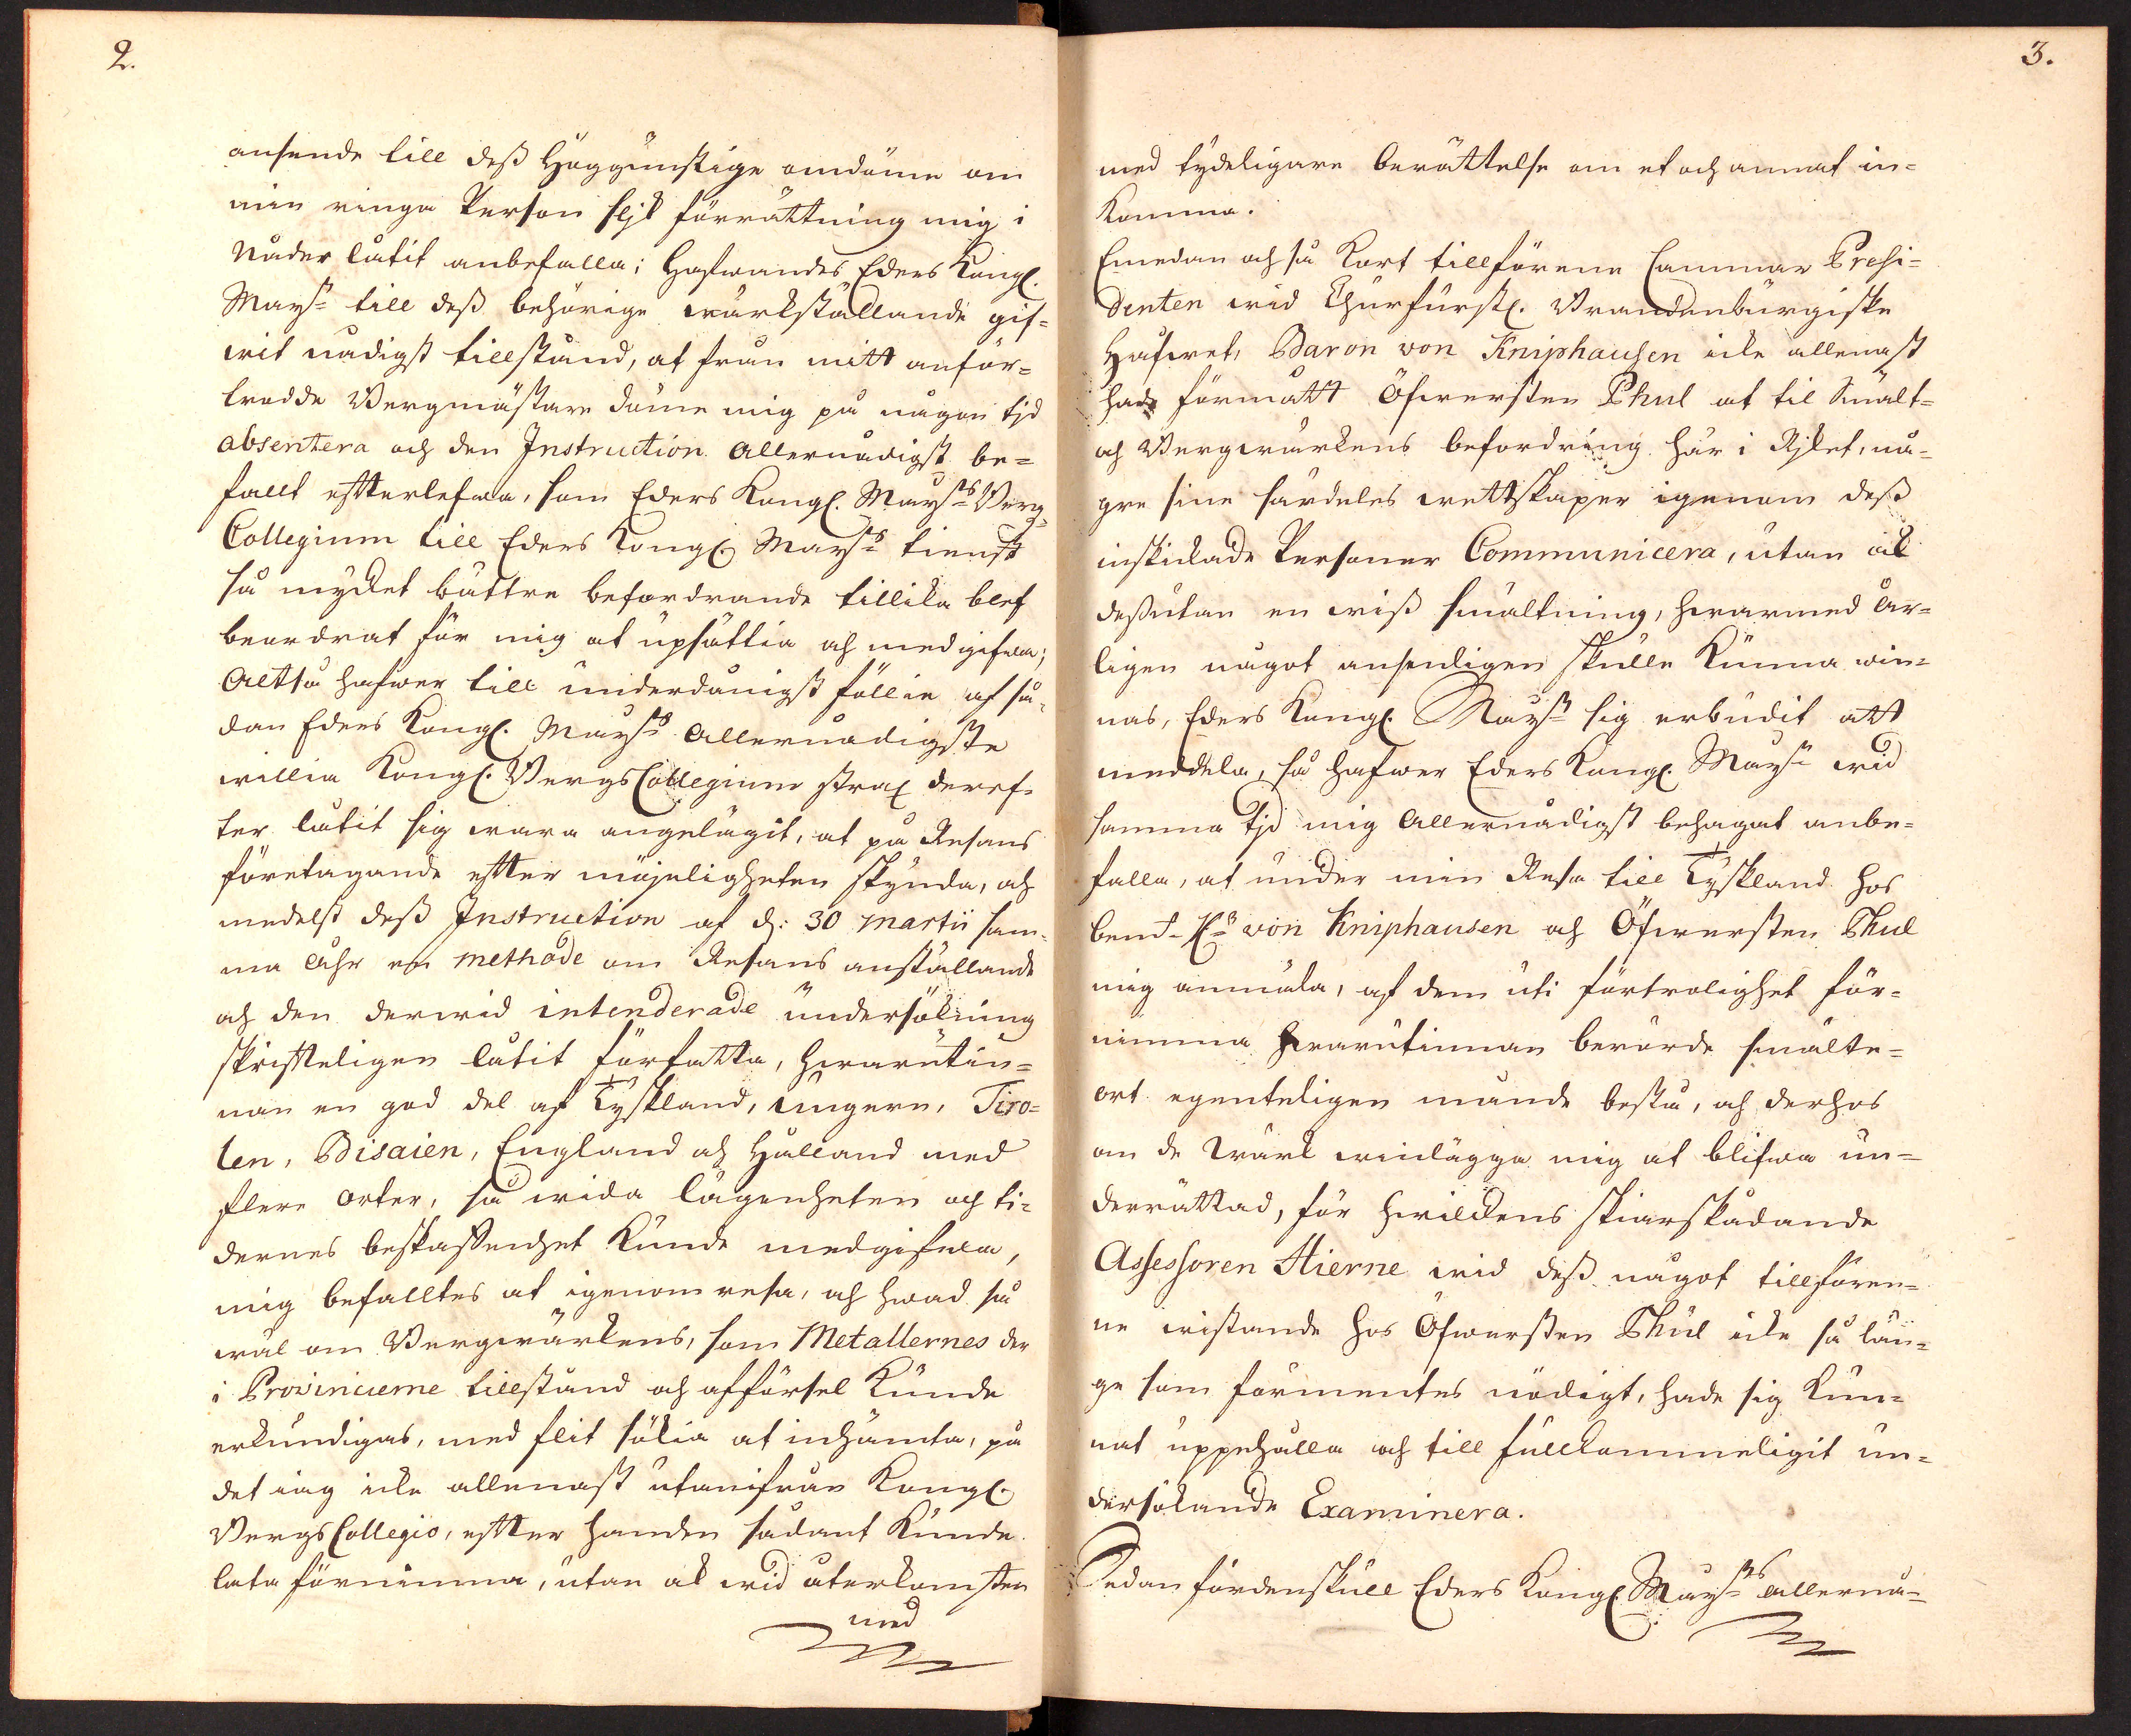 2.
ansende till deß Höggunstige omdöme om
min ringa Person slik förrättning mig i
Nåder låtit anbefalla; Hafwandes Eders Kongl.
Mayst till deß behörige wärkställande gif=
wit nådigst tillstånd, at från mitt anför=
trodde Bergmästare döme mig på någon tjd
absentera och den Instruction allernådigst be=
fallt efterlefwa, som Eders Kongl. Maysts Berg=
Collegium till Eders Kongl. Maysts tienst
så mycket bättre befordrande tillika blef
beordrat för mig at upsättia och medgifwa;
Altså hafwer till underdånigst föllie af så=
dan Eders Kongl. Maysts allernådigste
willia Kongl. BergsCollegium strax deref=
ter låtit sig wara angelägit, at på Resans
företagande efter möjeligheten skynda, och
medelst deß Instruction af d: 30 martii sam=
ma åhr en methode om Resans anställande
och den derwid intenderade undersökning
skrifteligen låtit författa, hwarutin=
nan en god del af Tyskland, Ungern, Tiro=
len, Bisaien, England och Holland med
flere orter, så wida lägenheten och ti=
dernes beskaffenhet kunde medgifwa,
mig befalltes at igenom resa, och hwad så
wäl om Bergwärkens, som Metallernes der
i Provincierne tillstånd och afförsel kunde
erkundigas, med flit sökia at inhämta, på
det iag icke allenast utanifrån Kongl.
BergsCollegio, efter handen sådant kunde
låta förnimma, utan ok wid återkomsten
med
3.
med tydeligare berättelse om et och annat in=
komma.
Emedan och så kort tillförene Cammar Presi=
denten wid Churfürstl. Brandenburgiske
Hofwet, Baron von Kniphausen icke allenast
hade förmått Öfwersten Phul at til Smält=
och Bergwärkens befordring här i Rjket, nå=
gre sine särdeles wettskaper igenom deß
inskickade Personer Communicera, utan ok
deßutan en wiß smältning, hwarmed år=
ligen något ansenligen skulle kunna win=
nas, Eders Kongl. Mayst sig erbudit att
meddela, så hafwer Eders Kongl. Mayst wid
samma tjd mig allernådigst behagat anbe=
falla, at under min Resa till Tyskland hos
bemt. Hr von Kniphausen och Öfwersten Phul
mig anmäla, af dem uti förtrolighet för=
nimma hwarutinnan berörde smälte=
ort egenteligen månde bestå, och derhos
om de wärk winlägga mig at blifwa un=
derrättad, för hwilckens skiärskådande
Assessoren Hierne wid deß något tillfören=
ne wistande hos Öfwersten Phul icke så län=
ge som förmentes nödigt, hade sig kun=
nat uppehålla och till fullkommeligit un=
dersökande Examinera.
Sedan fördenskull Eders Kongl. Maysts allernå=